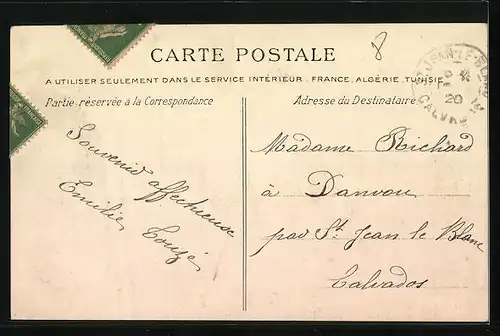 CARTE POSTALE
8
A UTILISER SEULEMENT DANS LE SERVICE INTÉRIEUR, FRANCE, ALGÉRIE, TUNISIE
Partie réservée à la Correspondance
Adresse du Destinataire
ST JEAN-LE-BLANC
20
CALVADOS
Souvenir affectueuse
Emilie Touzé
Madame Richard
à Danvou
par St Jean le Blanc
Calvados